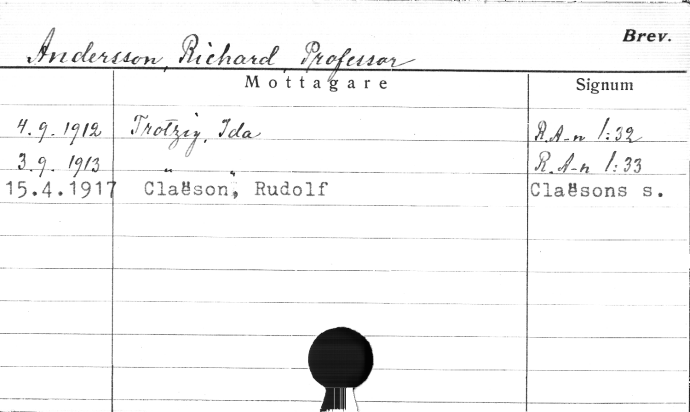 Brev.
Andersson, Richard, Professor
Mottagare Signum
4.9.1912 Trotzig, Ida R.A-n 1:32
3.9.1913 " " R.A-n 1:33
15.4.1917 Claëson, Rudolf Claësons s.